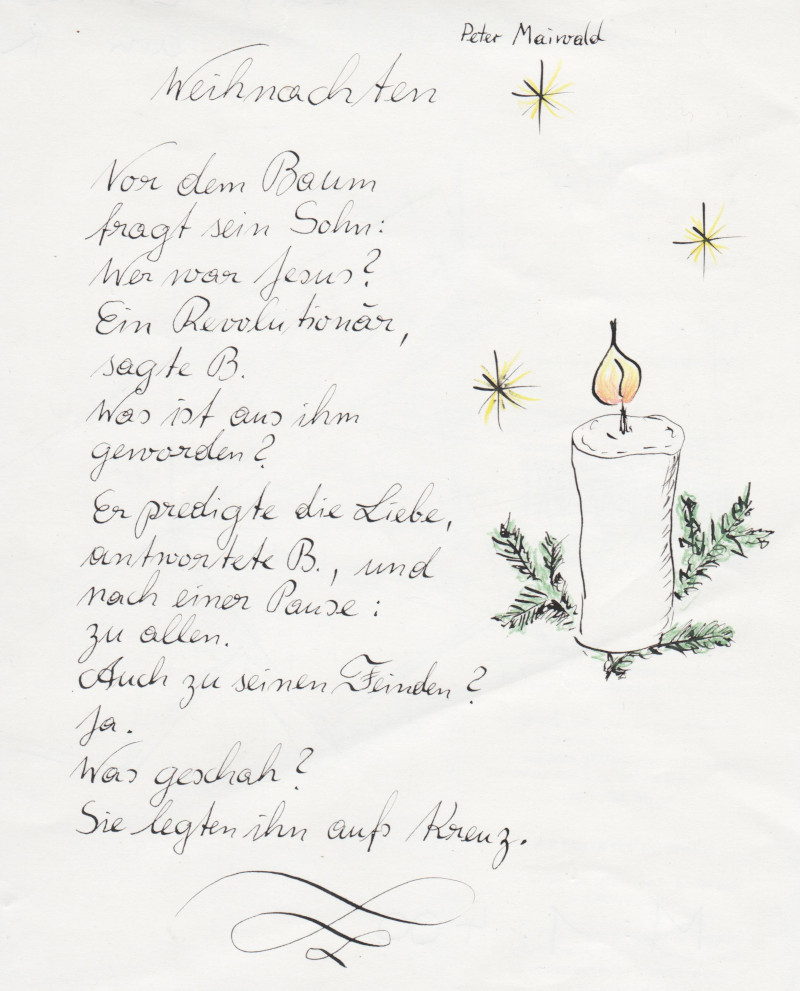 Peter Maiwald
Weihnachten
Vor dem Baum
fragt sein Sohn:
Wer war Jesus?
Ein Revolutionär,
sagte B.
Was ist aus ihm
geworden?
Er predigte die Liebe,
antwortete B., und
nach einer Pause:
zu allen.
Auch zu seinen Feinden?
Ja.
Was geschah?
Sie legten ihn aufs Kreuz.